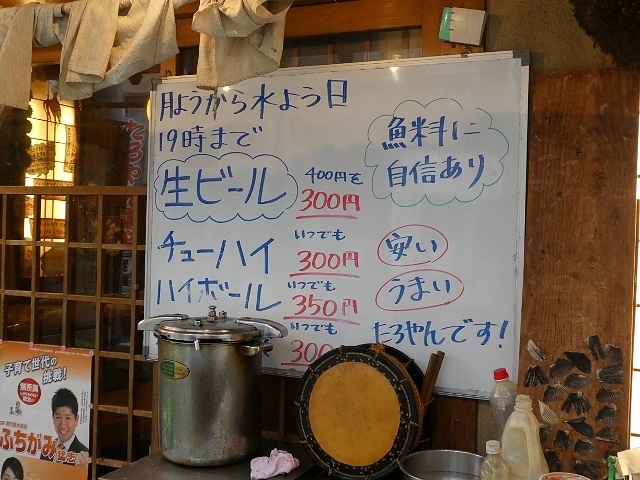 月ようから水よう日
19時まで
生ビール 400円を
300円
チューハイ いつでも
300円
ハイボール いつでも
350円
いつでも
300
魚料に
自信あり
安い
うまい
たろやんです!
子育て世代の
挑戦!
無所属
ふちがみ猛志